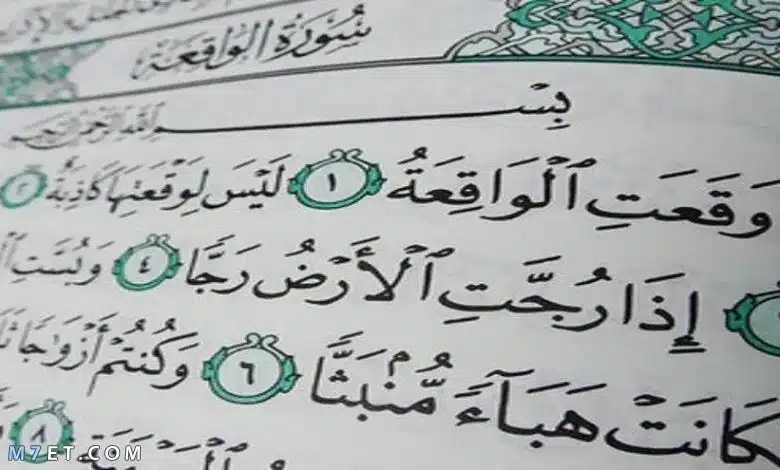 سُورَةُ الوَاقِعَةِ
بِسْمِ اللَّهِ الرَّحْمَٰنِ الرَّحِيمِ
وَقَعَتِ ٱلْوَاقِعَةُ ١ لَيْسَ لِوَقْعَتِهَا كَاذِبَةٌ ٢
إِذَا رُجَّتِ ٱلْأَرْضُ رَجًّا ٤ وَبُسَّتِ
كَانَتْ هَبَآءً مُّنۢبَثًّا ٦ وَكُنتُمْ أَزْوَٰجًا
٨
M7ET.COM